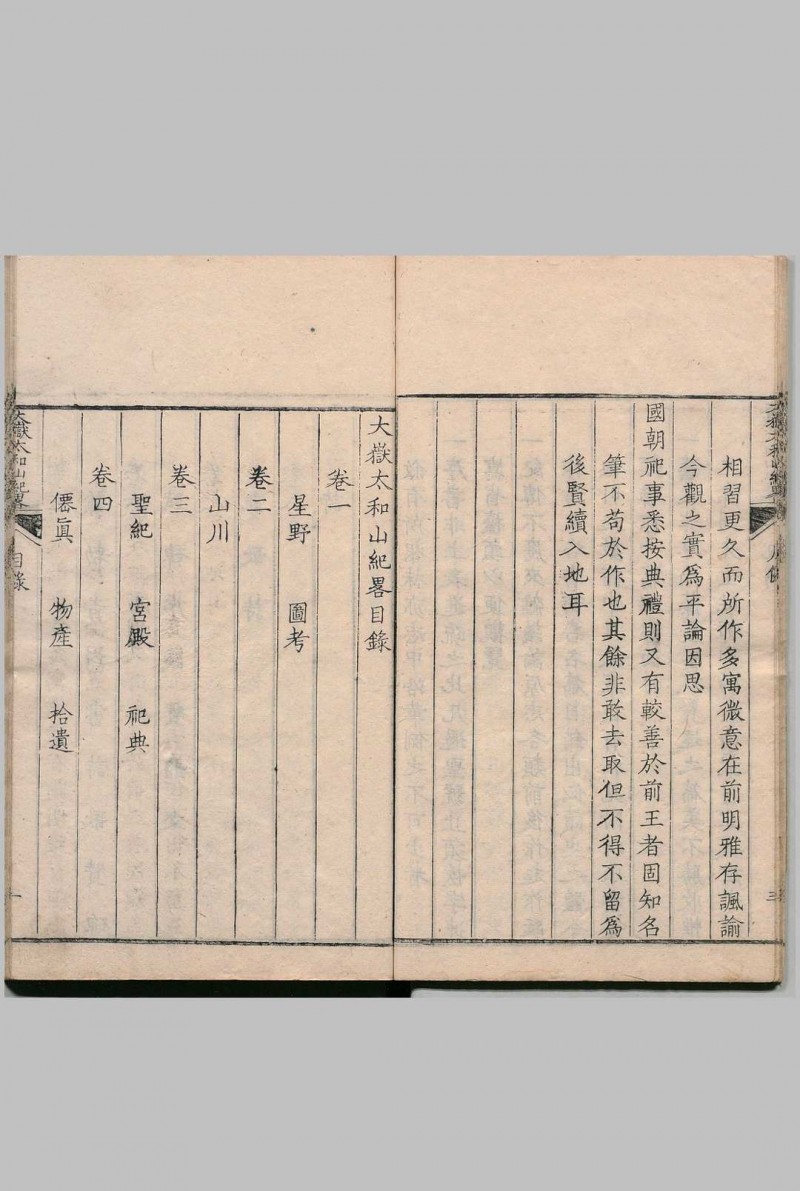 相習更久而所作多寓微意在前明雅存諷諭
今觀之實爲平論因思
國朝祀事悉按典禮則又有較善於前王者固知名
筆不苟於作也其餘非敢去取但不得不留爲
後賢續入地耳
大嶽太和山紀畧目錄
卷一
星野 圖考
卷二
山川
卷三
聖紀 宮殿 祀典
卷四
僊眞 物產 拾遺
大嶽太和山紀畧
目錄
一